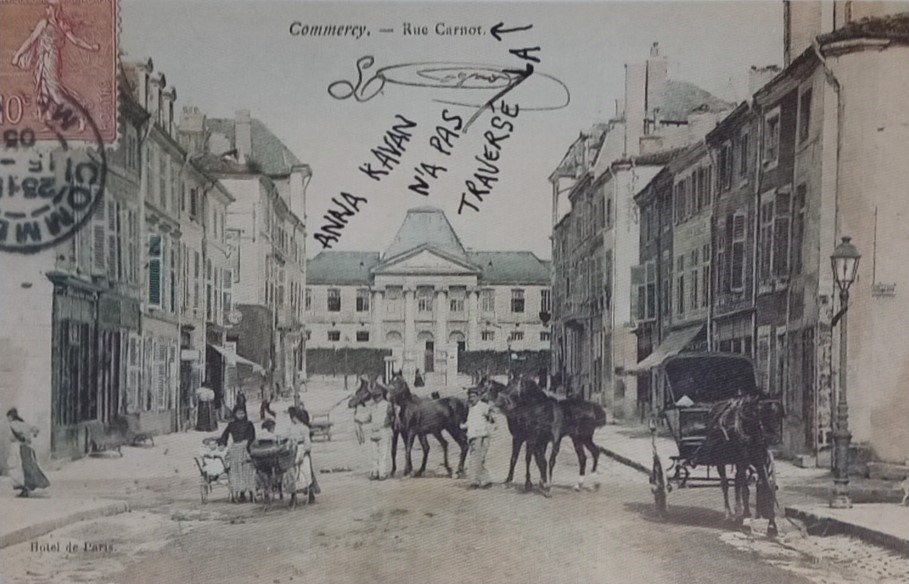 Commercy. — Rue Carnot.
ANNA KAVAN
N'A PAS
TRAVERSÉ LA
COMME
05
Hotel de Paris.